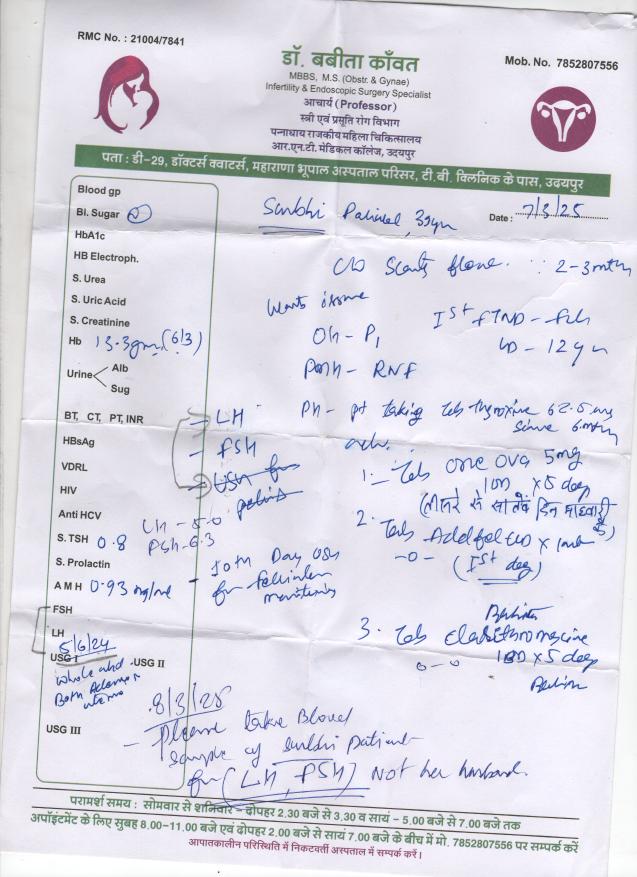 RMC No. : 21004/7841
डॉ. बबीता काँवत
MBBS, M.S. (Obstr. & Gynae)
Infertility & Endoscopic Surgery Specialist
आचार्य (Professor)
स्त्री एवं प्रसूति रोग विभाग
पन्नाधाय राजकीय महिला चिकित्सालय
आर.एन.टी. मेडिकल कॉलेज, उदयपुर
Mob. No. 7852807556
पता : डी-29, डॉक्टर्स क्वाटर्स, महाराणा भूपाल अस्पताल परिसर, टी.बी. क्लिनिक के पास, उदयपुर
Date : 7/3/25
Blood gp
Bl. Sugar
HbA1c
HB Electroph.
S. Urea
S. Uric Acid
S. Creatinine
Hb 13.3gm (6/3)
Urine Alb
Sug
BT, CT, PT, INR
HBsAg
VDRL
HIV
Anti HCV
S. TSH 0.8
S. Prolactin
A M H 0.93 ng/ml
FSH
LH
5/6/24
USG I
USG II
USG III
2-3 mth
Wants issue
Ist FTND - 
LD - 12 yr
OH - P1
- LH
- FSH
PH - pt taking Tab thyroxine 62.5
since 6 mth
adv.
1. Tab One Ova 5mg
1 OD x 5 day
LH - 5.0
FSH - 6.3
2. Tab
(Ist day)
- 10th Day USG
for follicular
monitoring
3. Tab
x 5 day
8/3/25
- Please take Blood
sample of Surbhi patient
for (LH, FSH) Not her husband.
परामर्श समय : सोमवार से शनिवार - दोपहर 2.30 बजे से 3.30 व सायं - 5.00 बजे से 7.00 बजे तक
अपॉइंटमेंट के लिए सुबह 8.00-11.00 बजे एवं दोपहर 2.00 बजे से सायं 7.00 बजे के बीच में मो. 7852807556 पर सम्पर्क करें
आपातकालीन परिस्थिति में निकटवर्ती अस्पताल में सम्पर्क करें।